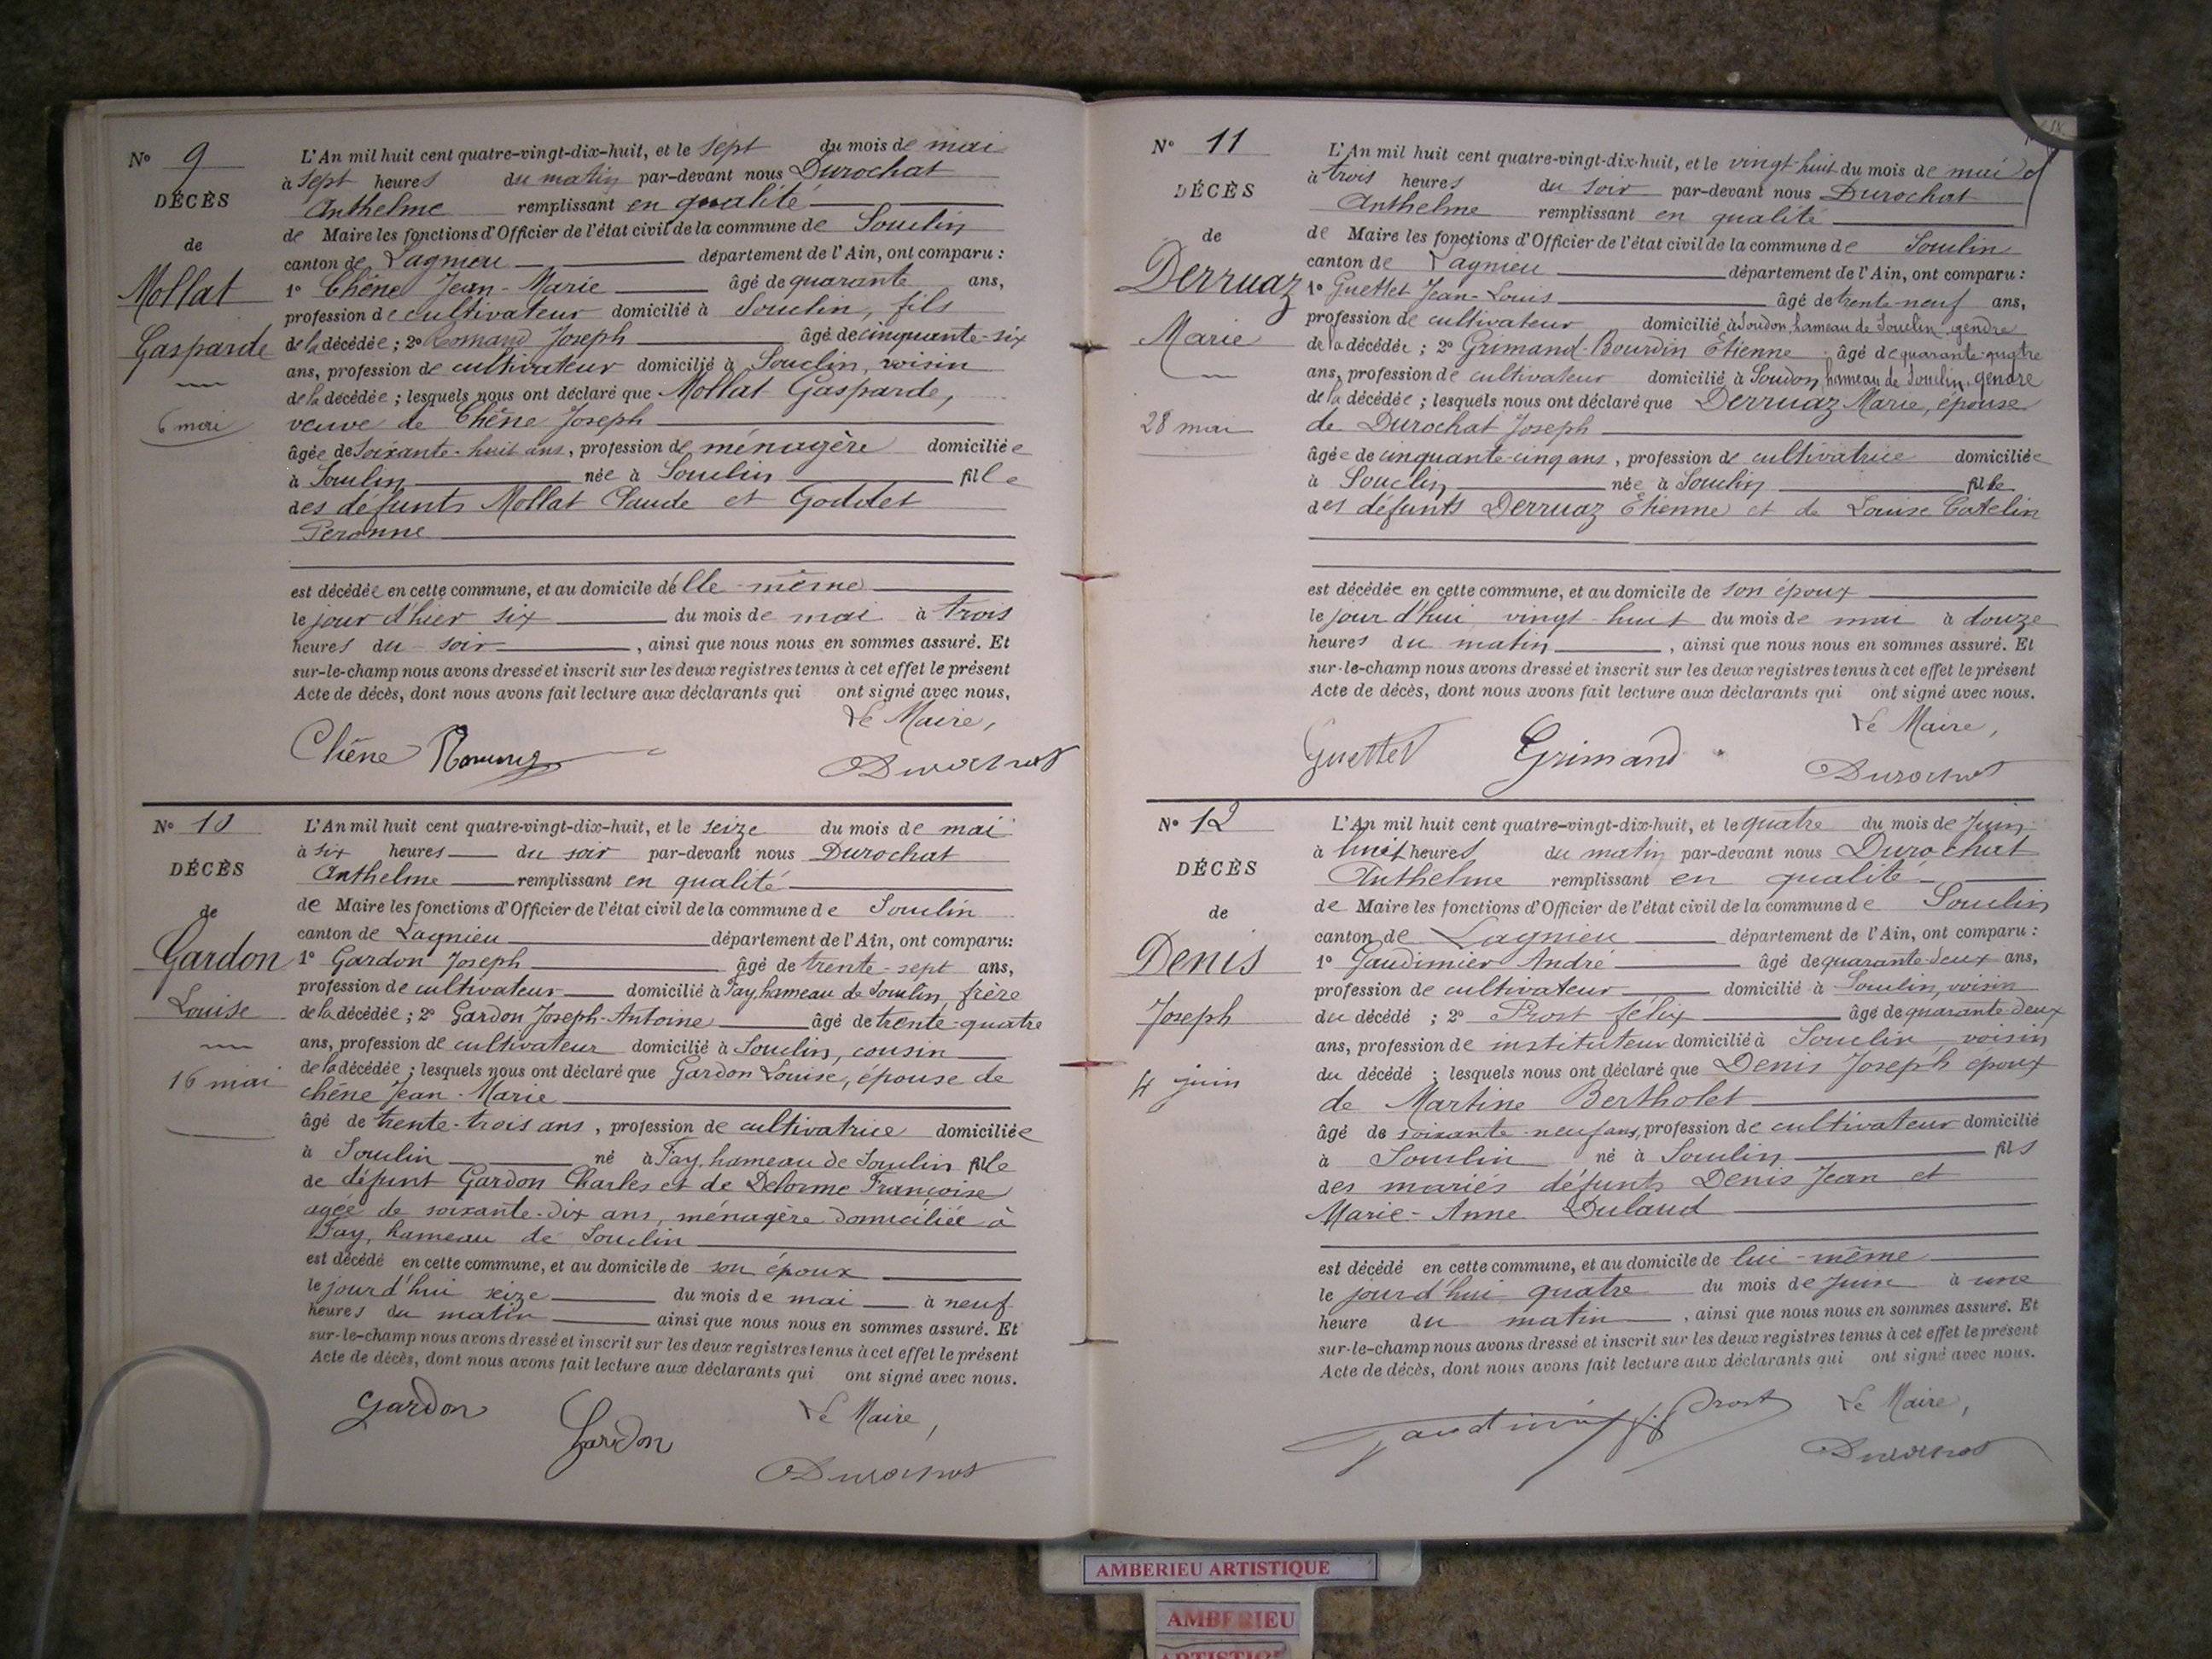 N° 9
L'An mil huit cent quatre-vingt-dix-huit, et le sept du mois de mai
à sept heures du matin par-devant nous Durochat
DÉCÈS
Anthelme remplissant en qualité
de
de Maire les fonctions d'Officier de l'état civil de la commune de Souclin
canton de Lagnieu département de l'Ain, ont comparu :
Mollat
1° Chêne Jean-Marie âgé de quarante ans,
profession de cultivateur domicilié à Souclin, fils
Gasparde
de la décédée ; 2° Joseph âgé de cinquante-six
ans, profession de cultivateur domicilié à Souclin, voisin
de la décédée ; lesquels nous ont déclaré que Mollat Gasparde,
6 mai
veuve de Chêne Joseph
âgée de soixante-huit ans, profession de ménagère domiciliée
à Souclin née à Souclin fille
des défunts Mollat Claude et Goddet
Peronne
est décédée en cette commune, et au domicile de elle-même
le jour d'hier six du mois de mai à trois
heures du soir, ainsi que nous nous en sommes assuré. Et
sur-le-champ nous avons dressé et inscrit sur les deux registres tenus à cet effet le présent
Acte de décès, dont nous avons fait lecture aux déclarants qui ont signé avec nous,
Le Maire,
Chêne Durochat
N° 10
L'An mil huit cent quatre-vingt-dix-huit, et le seize du mois de mai
à six heures du soir par-devant nous Durochat
DÉCÈS
Anthelme remplissant en qualité
de
de Maire les fonctions d'Officier de l'état civil de la commune de Souclin
canton de Lagnieu département de l'Ain, ont comparu :
Gardon
1° Gardon Joseph âgé de trente-sept ans,
profession de cultivateur domicilié à Fay, hameau de Souclin, frère
Louise
de la décédée ; 2° Gardon Joseph-Antoine âgé de trente-quatre
ans, profession de cultivateur domicilié à Souclin, cousin
16 mai
de la décédée ; lesquels nous ont déclaré que Gardon Louise, épouse de
chêne Jean-Marie
âgé de trente-trois ans, profession de cultivatrice domiciliée
à Souclin né à Fay, hameau de Souclin fille
de défunt Gardon Charles et de Delorme Françoise
agée de soixante-dix ans, ménagère domiciliée à
Fay, hameau de Souclin
est décédé en cette commune, et au domicile de son époux
le jour d'hui seize du mois de mai à neuf
heures du matin ainsi que nous nous en sommes assuré. Et
sur-le-champ nous avons dressé et inscrit sur les deux registres tenus à cet effet le présent
Acte de décès, dont nous avons fait lecture aux déclarants qui ont signé avec nous.
Gardon Gardon Le Maire,
Durochat
N° 11
L'An mil huit cent quatre-vingt-dix-huit, et le vingt-huit du mois de mai
à trois heures du soir par-devant nous Durochat
DÉCÈS
Anthelme remplissant en qualité
de
de Maire les fonctions d'Officier de l'état civil de la commune de Souclin
canton de Lagnieu département de l'Ain, ont comparu :
Derruaz
1° Guettet Jean-Louis âgé de trente-neuf ans,
profession de cultivateur domicilié à Soudon, hameau de Souclin, gendre
Marie
de la décédée ; 2° Grimand-Bourdin Etienne âgé de quarante-quatre
ans, profession de cultivateur domicilié à Soudon, hameau de Souclin, gendre
de la décédée ; lesquels nous ont déclaré que Derruaz Marie, épouse
28 mai
de Durochat Joseph
âgée de cinquante-cinq ans, profession de cultivatrice domiciliée
à Souclin née à Souclin fille
des défunts Derruaz Etienne et de Louise Catelin
est décédée en cette commune, et au domicile de son époux
le jour d'hui vingt-huit du mois de mai à douze
heures du matin, ainsi que nous nous en sommes assuré. Et
sur-le-champ nous avons dressé et inscrit sur les deux registres tenus à cet effet le présent
Acte de décès, dont nous avons fait lecture aux déclarants qui ont signé avec nous.
Le Maire,
Guettet Grimand Durochat
N° 12
L'An mil huit cent quatre-vingt-dix-huit, et le quatre du mois de Juin
à huit heures du matin par-devant nous Durochat
DÉCÈS
Anthelme remplissant en qualité
de
de Maire les fonctions d'Officier de l'état civil de la commune de Souclin
canton de Lagnieu département de l'Ain, ont comparu :
Denis
1° Gaudimier André âgé de quarante-deux ans,
profession de cultivateur domicilié à Souclin, voisin
Joseph
du décédé ; 2° Prost félix âgé de quarante-deux
ans, profession de instituteur domicilié à Souclin, voisin
4 juin
du décédé ; lesquels nous ont déclaré que Denis Joseph époux
de Martine Bertholet
âgé de soixante-neuf ans, profession de cultivateur domicilié
à Souclin né à Souclin fils
des mariés défunts Denis Jean et
Marie-Anne Dulaud
est décédé en cette commune, et au domicile de lui-même
le jour d'hui quatre du mois de Juin à une
heure du matin, ainsi que nous nous en sommes assuré. Et
sur-le-champ nous avons dressé et inscrit sur les deux registres tenus à cet effet le présent
Acte de décès, dont nous avons fait lecture aux déclarants qui ont signé avec nous.
Prost Le Maire,
Durochat
AMBERIEU ARTISTIQUE
AMBERIEU
ARTISTIQUE